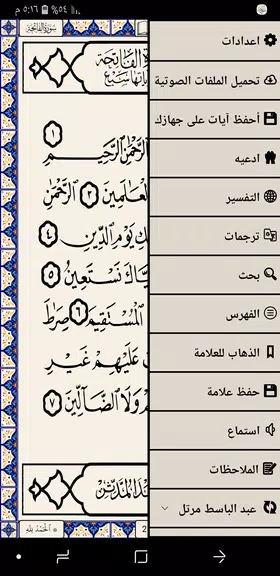 ٥:١٦ م ٥٤%
سورة الفاتحة
اعدادات
تحميل الملفات الصوتية
أحفظ آيات على جهازك
ادعيه
التفسير
ترجمات
بحث
الفهرس
الذهاب للعلامة
حفظ علامة
استماع
الملاحظات
عبد الباسط مرتل
الفاتحة
سبع
الرَّحْمَٰنِ الرَّحِيمِ ١
الْعَالَمِينَ ٢ الرَّحْمَٰنِ
يَوْمِ الدِّينِ ٤
نَسْتَعِينُ ٥
الْمُسْتَقِيمَ ٦ صِرَٰطَ
عَلَيْهِمْ غَيْرِ
وَلَا الضَّالِّينَ ٧
2